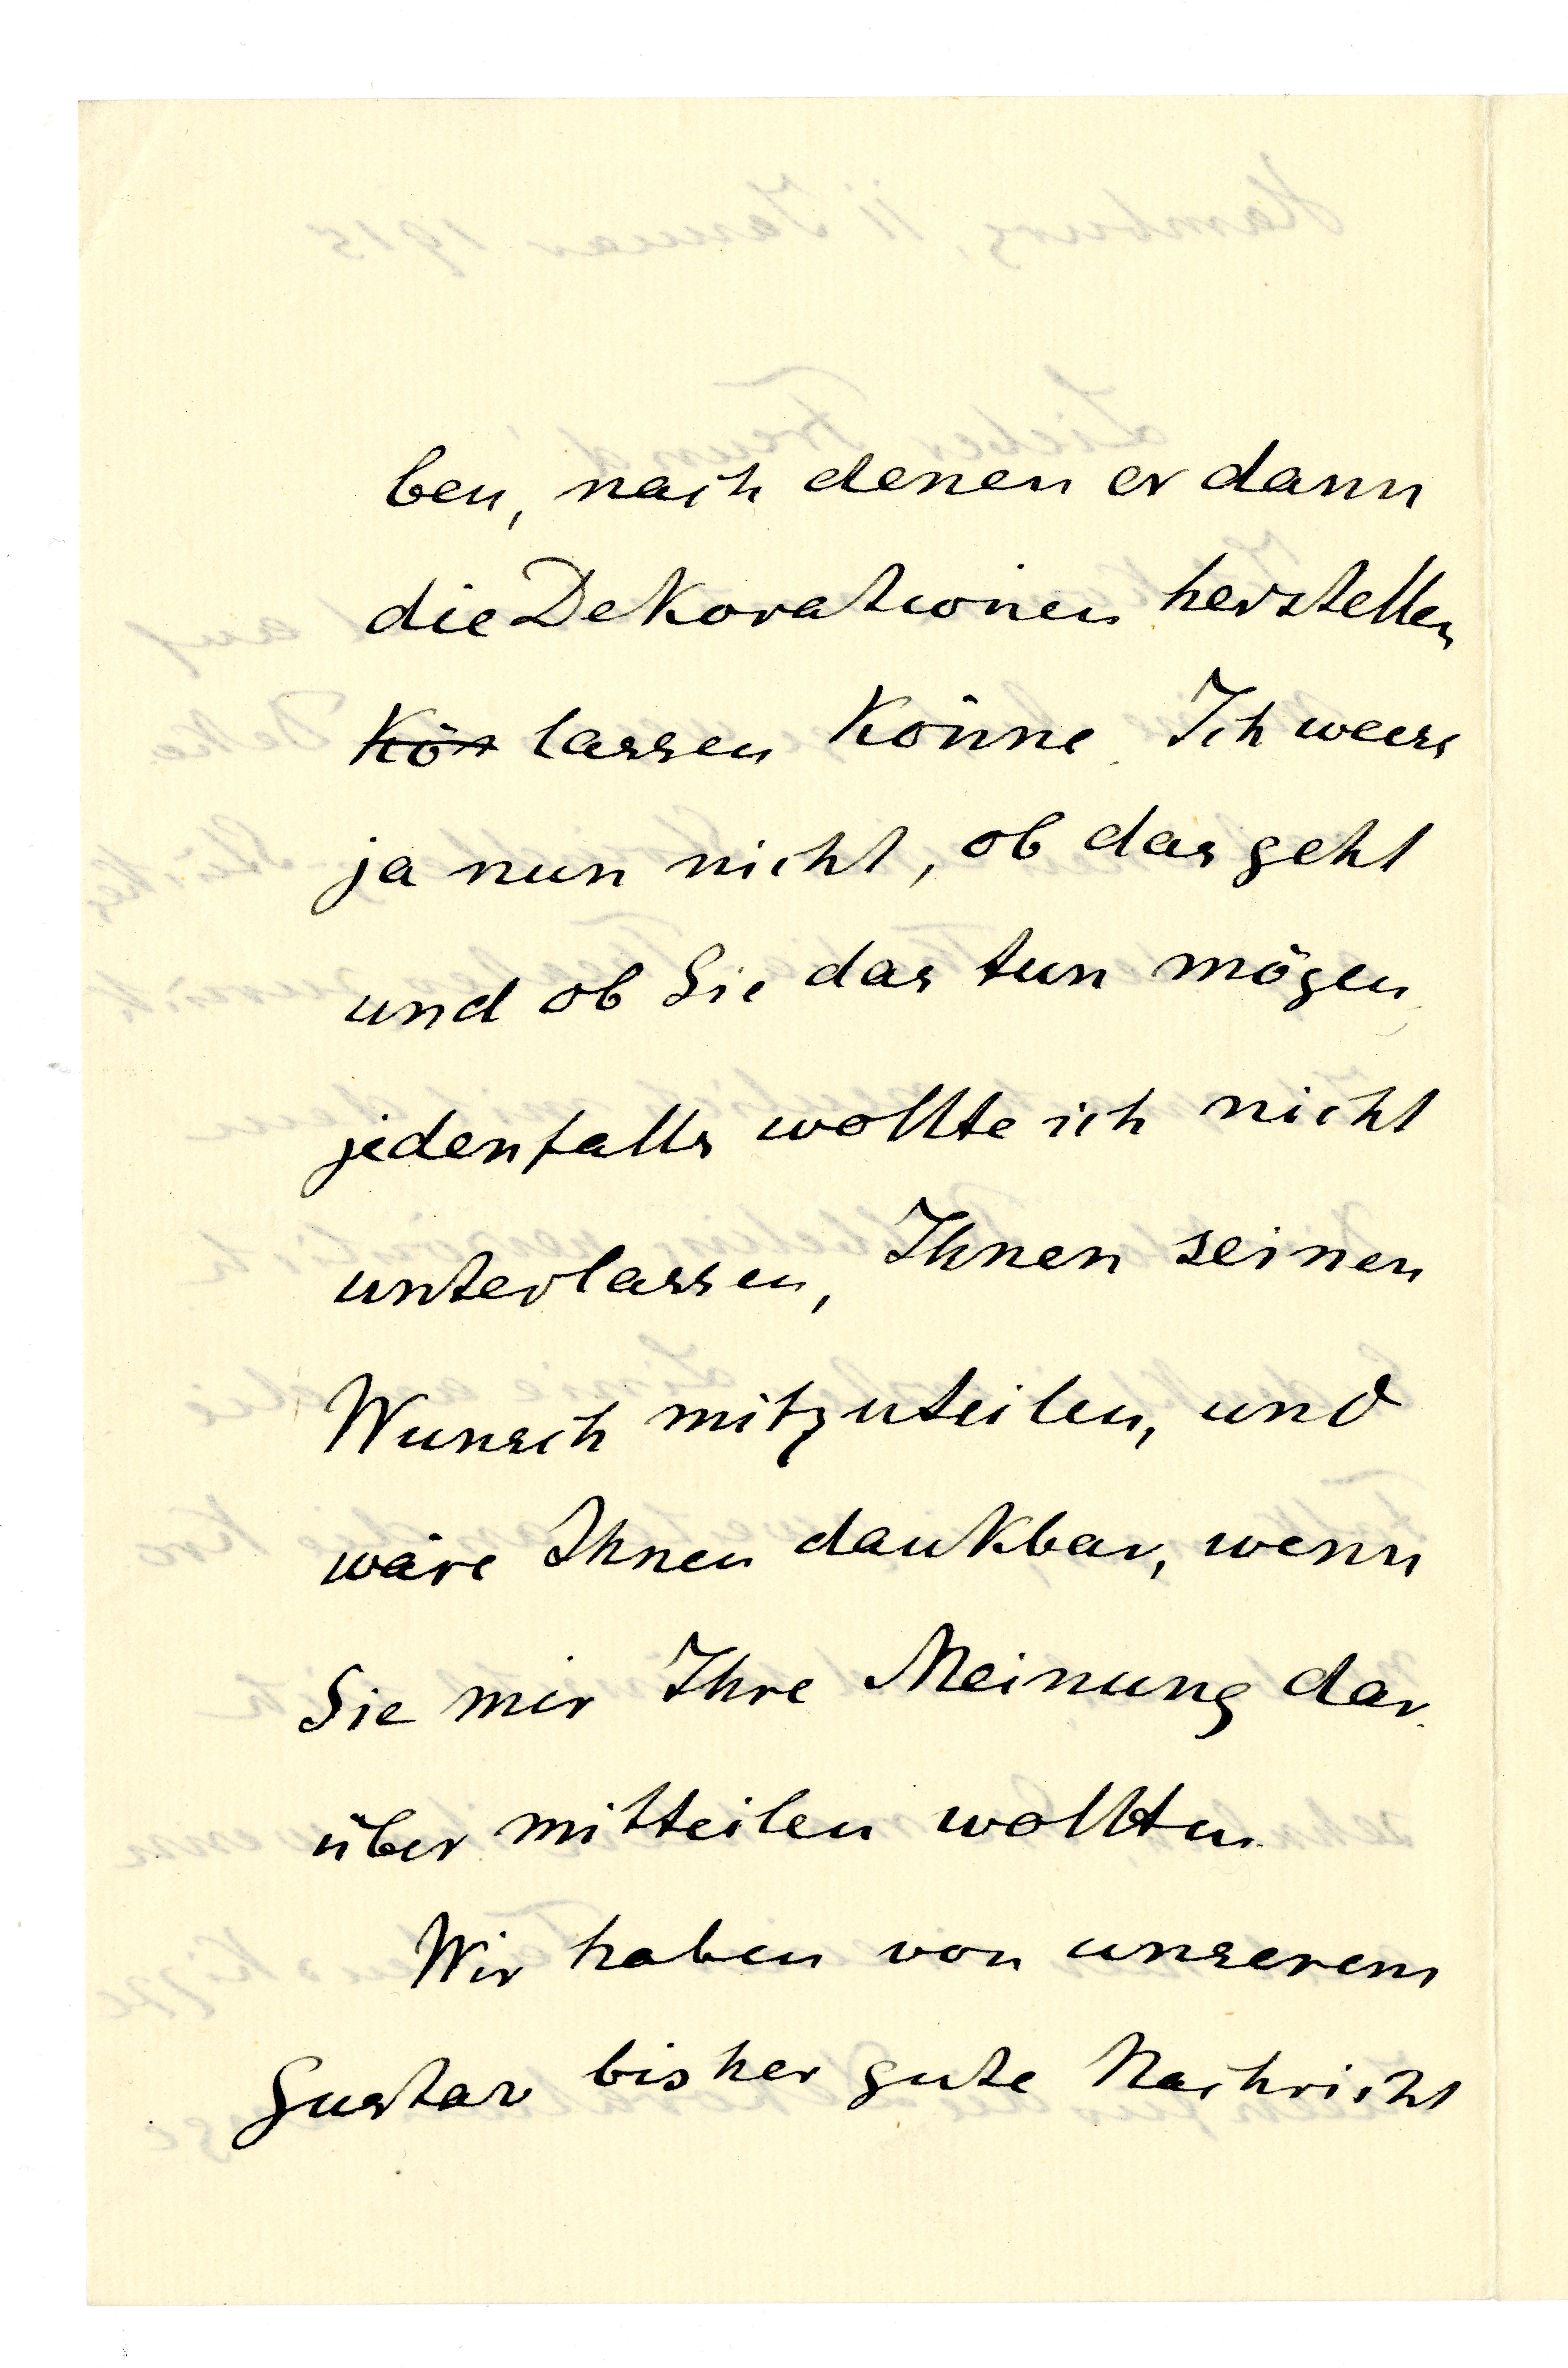 ben, nach denen er dann
die Dekorationen herstellen
Kön lassen Könne. Ich weiss
ja nun nicht, ob das geht
und ob Sie das tun mögen,
jedenfalls wollte ich nicht
unterlassen, Ihnen seinen
Wunsch mitzuteilen, und
wäre Ihnen dankbar, wenn
Sie mir Ihre Meinung dar-
über mitteilen wollten.
Wir haben von unserem
Gustav bisher gute Nachricht